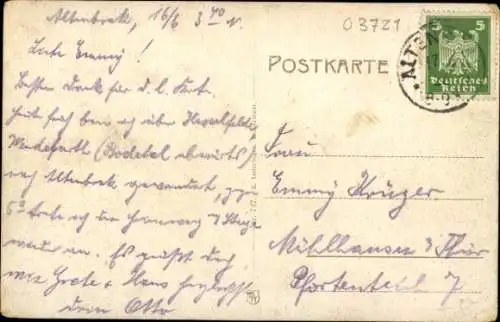 Altenbrak, 16/6 3 40 N.
Liebe Emmy!
Besten Dank für d. l. Karte.
Heute früh bin ich über Hasselfelde
Wendefurth (Bodetal abwärts)
nach Altenbrak gewandert, gegen
5° trete ich den Heimweg
an. Es grüßt dich
Grete + Hans herzlichst
dein Otto
03721
POSTKARTE
5 5
Deutsches
Reich
ALTEN
Frau
Emmy Krüger
Mühlhausen i/Thür
Pfortenteich 7.